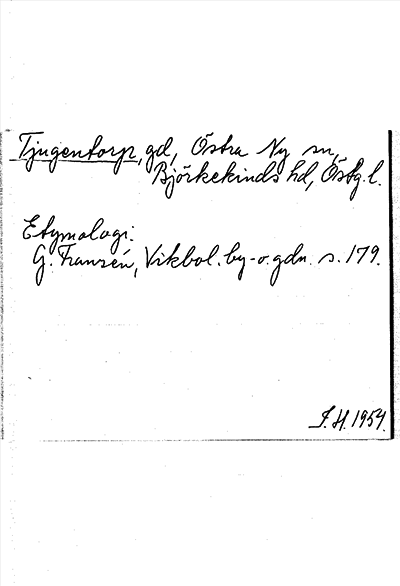 Tjugentorp, gd, Östra Ny sn,
Björkekinds hd, Östg.l.
Etymologi:
G. Franzén, Vikbol. by- o. gdn. s. 179.
I.H. 1954.